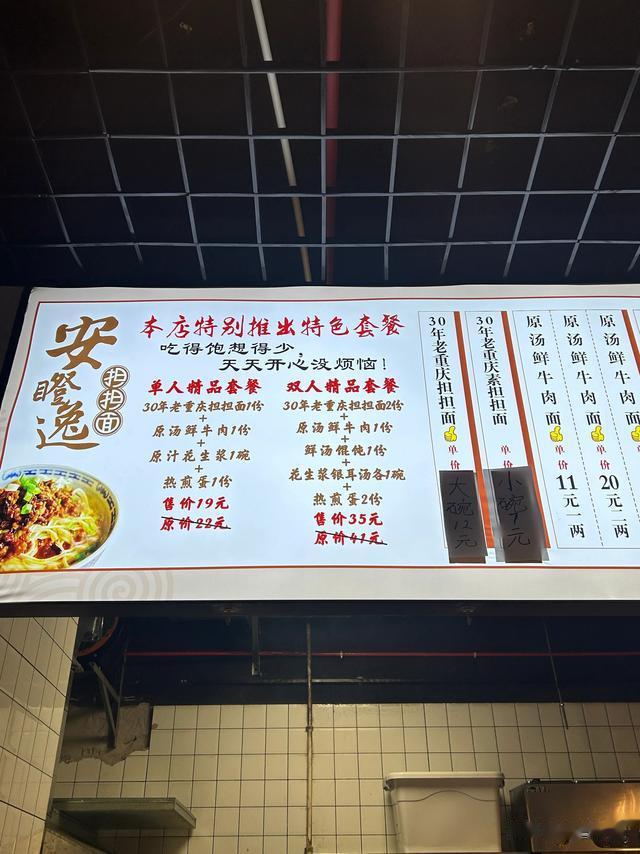 安瞪逸
担担面
本店特别推出特色套餐
吃得饱想得少,
天天开心没烦恼!
单人精品套餐
30年老重庆担担面1份
+
原汤鲜牛肉1份
+
原汁花生浆1碗
+
热煎蛋1份
售价19元
原价22元
双人精品套餐
30年老重庆担担面2份
+
原汤鲜牛肉1份
+
鲜汤馄饨1份
+
花生浆银耳汤各1碗
+
热煎蛋2份
售价35元
原价41元
30年老重庆担担面
单价
大碗12元
30年老重庆素担担面
单价
小碗9元
原汤鲜牛肉面
单价
11元一两
原汤鲜牛肉面
单价
20元二两
原汤鲜牛肉面
单价